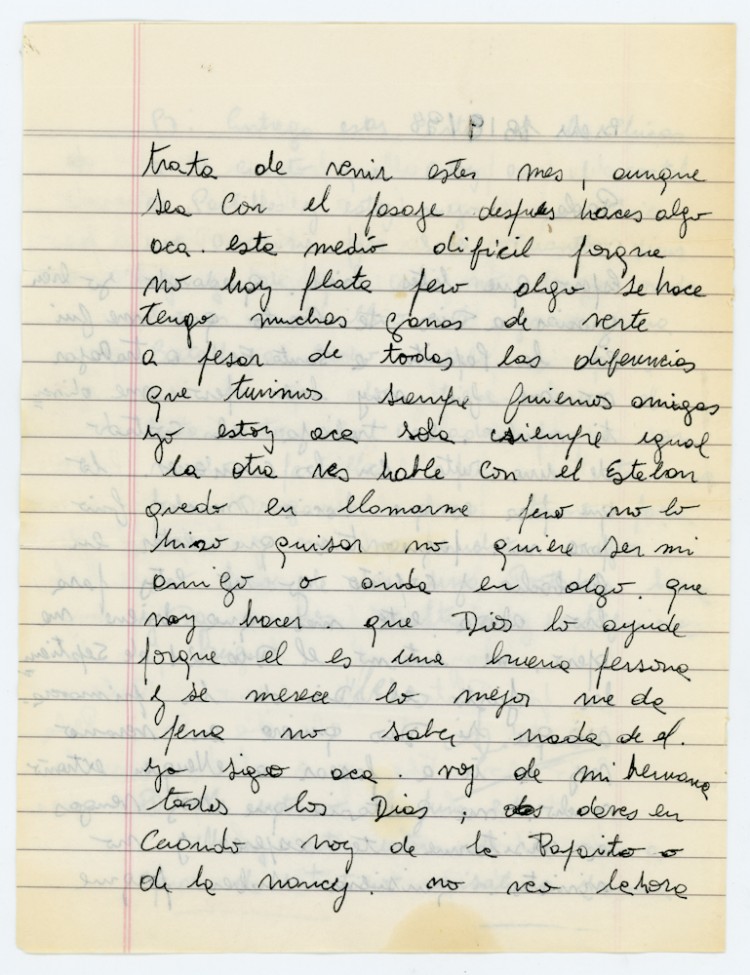 trata de venir este mes, aunque
sea con el pasaje despues haces algo
aca. esta medio dificil porque
no hay plata pero algo se hace
tengo muchas ganas de verte
a pesar de todas las diferencias
que tuvimos siempre fuiemos amigas
yo estoy aca sola siempre igual
la otra ves hable con el Esteban
quedo en llamarme pero no lo
hizo quisar no quiere ser mi
amigo o anda en algo. que
voy hacer. que Dios lo ayude
porque el es una buena persona
y se merece lo mejor me da
pena no saber nada de el.
yo sigo aca. voy de mi hermana
todos los Dias, dores en
Cuando voy de la Papaito o
de la nancy. no veo lahora